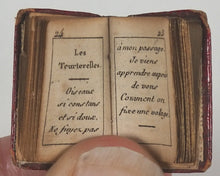 24
Les
Tourterelles.
Oiseaux
si constans
et si doux,
Ne fuyez pas
25
à mon passage.
Je viens
apprendre auprès
de vous
Comment on
fixe une volage.